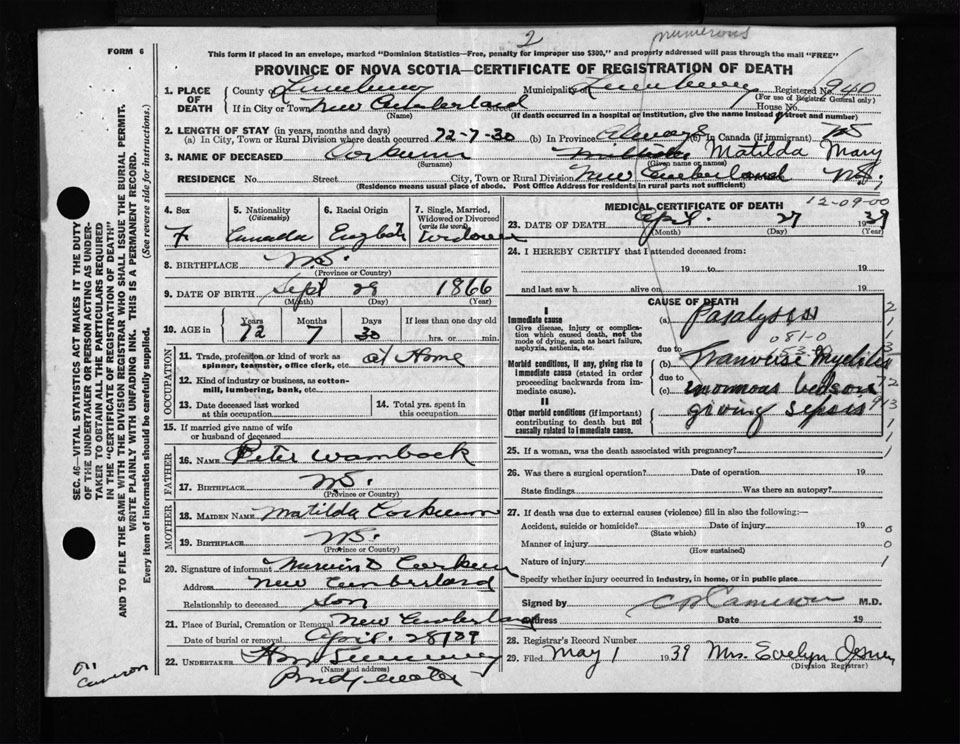 numerous
2
FORM 6
This form if placed in an envelope, marked "Dominion Statistics—Free, penalty for improper use $300," and properly addressed will pass through the mail "FREE"
PROVINCE OF NOVA SCOTIA—CERTIFICATE OF REGISTRATION OF DEATH
1. PLACE OF DEATH
County of Lunenburg Municipality of Lunenburg Registered No. 240
(For use of Registrar General only)
If in City or Town New Cumberland Street House No.
(Name) (If death occurred in a hospital or institution, give the name instead of street and number)
2. LENGTH OF STAY (in years, months and days)
(a) In City, Town or Rural Division where death occurred 72-7-30 (b) In Province Always (c) In Canada (if immigrant)
3. NAME OF DECEASED Corkum Matilda Mary
(Surname) (Given name or names)
RESIDENCE No. Street City, Town or Rural Division New Cumberland N.S.
(Residence means usual place of abode. Post Office Address for residents in rural parts not sufficient)
4. Sex F
5. Nationality (Citizenship) Canada
6. Racial Origin English
7. Single, Married, Widowed or Divorced (write the word) Widower
8. BIRTHPLACE N.S.
(Province or Country)
9. DATE OF BIRTH Sept 29 1866
(Month) (Day) (Year)
10. AGE in Years Months Days If less than one day old
72 7 30 hrs. or min.
OCCUPATION
11. Trade, profession or kind of work as spinner, teamster, office clerk, etc. at Home
12. Kind of industry or business, as cotton-mill, lumbering, bank, etc.
13. Date deceased last worked at this occupation
14. Total yrs. spent in this occupation
15. If married give name of wife or husband of deceased
FATHER
16. NAME Peter Wamback
17. BIRTHPLACE N.S.
(Province or Country)
MOTHER
18. MAIDEN NAME Matilda Corkum
19. BIRTHPLACE N.S.
(Province or Country)
20. Signature of informant Corkum
Address New Cumberland
Relationship to deceased Son
21. Place of Burial, Cremation or Removal New Cumberland
Date of burial or removal April 28/39
22. UNDERTAKER
(Name and address)
Bridgewater
MEDICAL CERTIFICATE OF DEATH
12-09-00
23. DATE OF DEATH April 27 1939
(Month) (Day) (Year)
24. I HEREBY CERTIFY that I attended deceased from:
19 to 19
and last saw h alive on 19
CAUSE OF DEATH
I
Immediate cause
Give disease, injury or complication which caused death, not the mode of dying, such as heart failure, asphyxia, asthenia, etc.
(a) Paralysis
081-0
due to
Morbid conditions, if any, giving rise to immediate cause (stated in order proceeding backwards from immediate cause).
(b) Tranverse Myelitis
due to
(c) enormous bedsore
II
Other morbid conditions (if important) contributing to death but not causally related to immediate cause.
giving sepsis
25. If a woman, was the death associated with pregnancy?
26. Was there a surgical operation? Date of operation 19
State findings Was there an autopsy?
27. If death was due to external causes (violence) fill in also the following:—
Accident, suicide or homicide? Date of injury 19
(State which)
Manner of injury
(How sustained)
Nature of injury
Specify whether injury occurred in industry, in home, or in public place
Signed by Cameron M.D.
Address Date 19
28. Registrar's Record Number
29. Filed May 1 1939 Mrs. Evelyn
(Division Registrar)
SEC. 46—VITAL STATISTICS ACT MAKES IT THE DUTY OF THE UNDERTAKER OR PERSON ACTING AS UNDERTAKER TO OBTAIN ALL THE PARTICULARS REQUIRED IN THE "CERTIFICATE OF REGISTRATION OF DEATH"
AND TO FILE THE SAME WITH THE DIVISION REGISTRAR WHO SHALL ISSUE THE BURIAL PERMIT.
WRITE PLAINLY WITH UNFADING INK. THIS IS A PERMANENT RECORD.
Every item of information should be carefully supplied. (See reverse side for instructions.)
Cameron